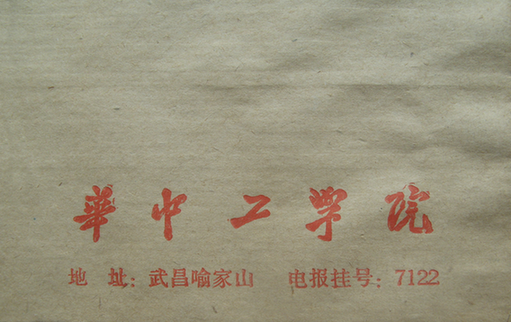 華中工学院
地 址：武昌喻家山 电报挂号：7122